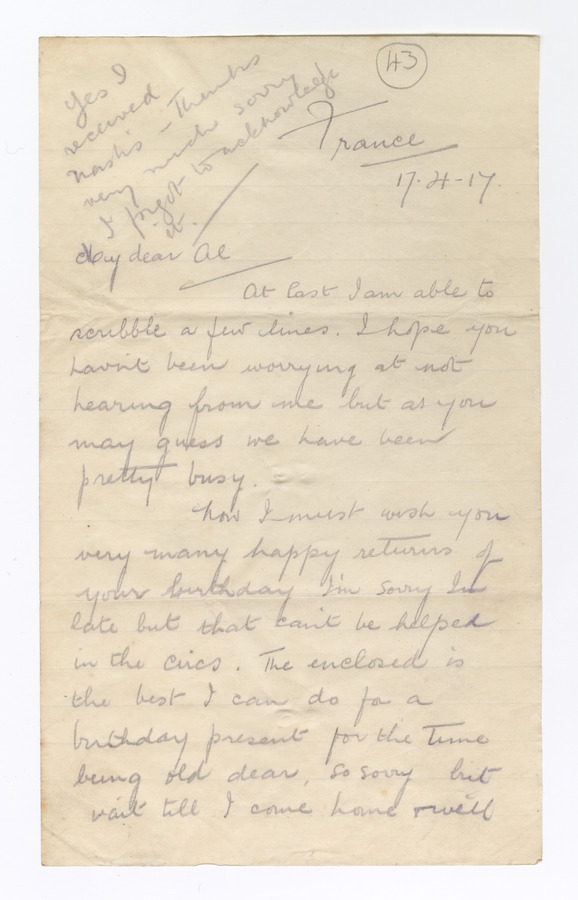 Yes I
received
Nash's - Thanks
very much sorry
I forgot to acknowledge
it.
43
France
17-4-17.
My dear Al
At last I am able to
scribble a few lines. I hope you
havn't been worrying at not
hearing from me but as you
may guess we have been
pretty busy.
Now I must wish you
very many happy returns of
your birthday I'm sorry I'm
late but that can't be helped
in the circs. The enclosed is
the best I can do for a
birthday present for the time
being old dear, so sorry but
wait till I come home & we'll